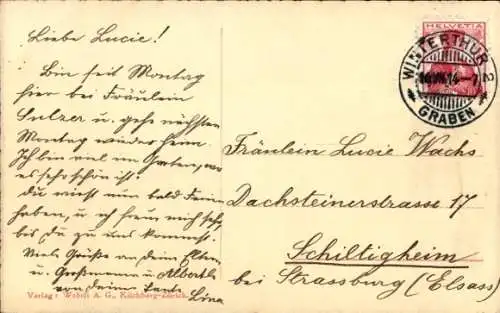 Liebe Lucie!
Bin seit Montag
hier bei Fräulein
Sulzer u. gehe nächsten
Montag wieder heim.
Ich bin viel im Garten, wo
es so schön ist.
Du wirst nun bald Ferien
haben, u. ich freue mich sehr,
bis du zu uns kommst.
Viele Grüße an deine Eltern
u. Großmama u. Albertli
von deiner Tante
Lina
Verlag: Wehrli A. G., Kilchberg-Zürich.
HELVETIA
WINTERTHUR 2
14
GRABEN
Fräulein Lucie Wachs
Dachsteinerstrasse 17
Schiltigheim
bei Strassburg (Elsass)